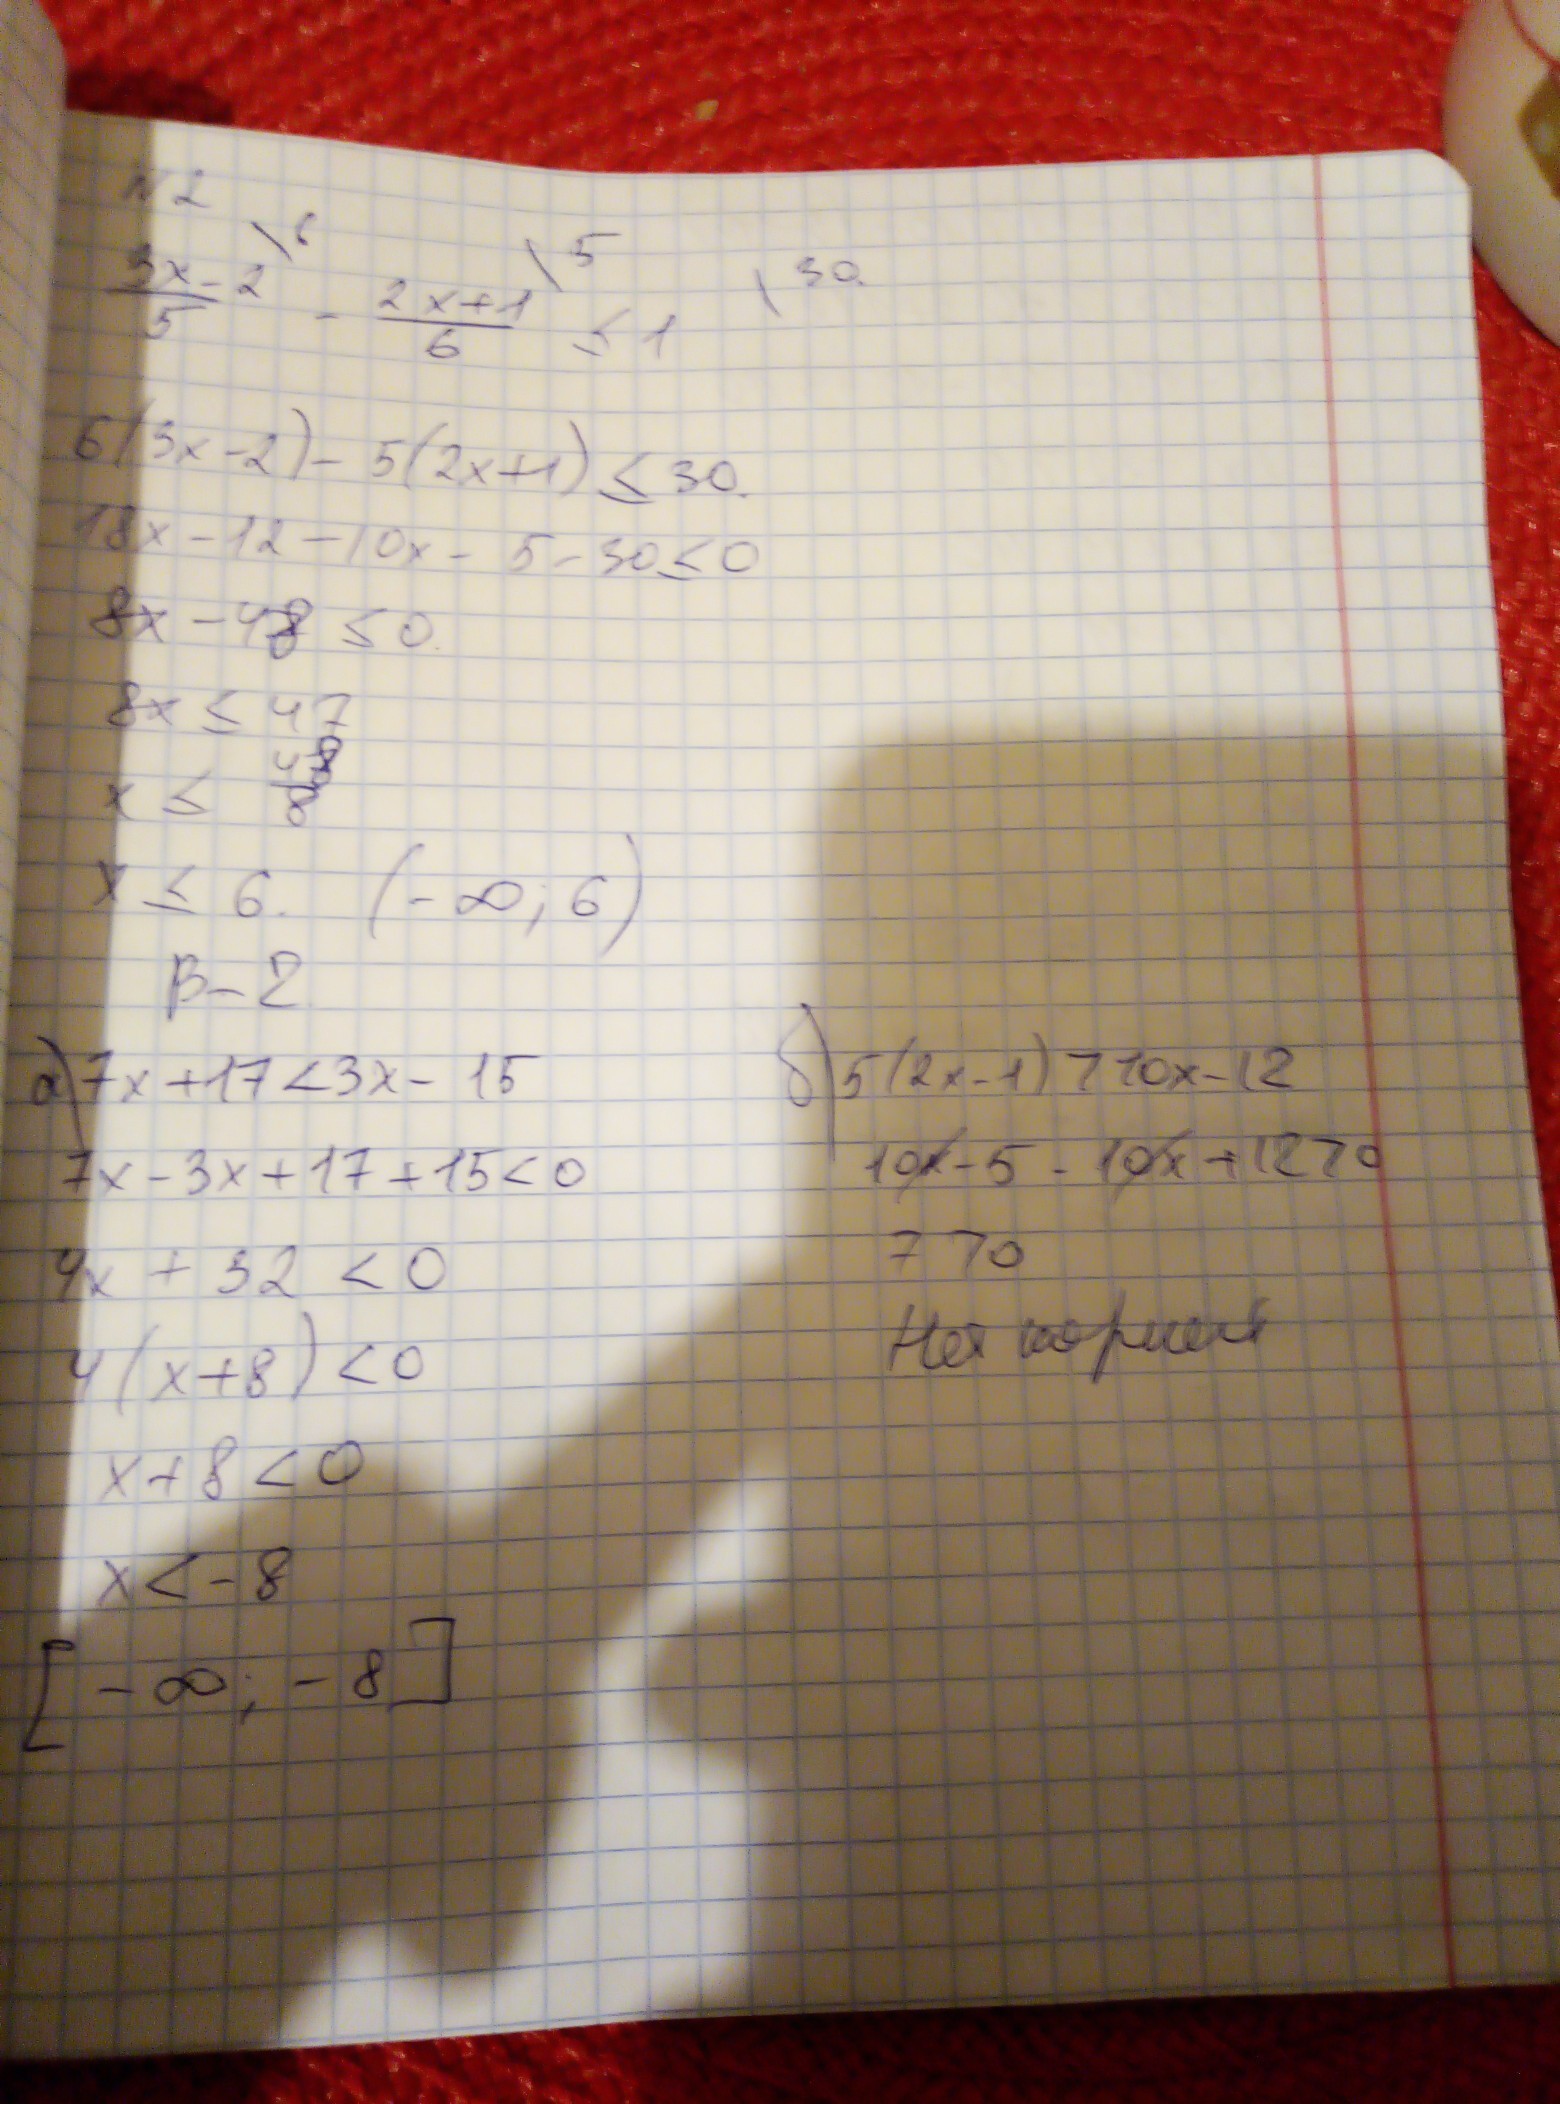 №2
\6 \5 \30
3x-2/5 - 2x+1/6 ≤ 1
6(3x-2)- 5(2x+1) ≤ 30.
18x-12-10x- 5-30≤0
8x-48 ≤ 0.
8x ≤ 47
x ≤ 48/8
x ≤ 6. (-∞; 6)
В-2
а) 7x+17<3x-15
7x-3x+17+15<0
4x + 32 < 0
4(x+8)<0
x+8<0
x<-8
[-∞; -8]
б) 5(2x-1)>10x-12
10x-5-10x+12>0
7>0
Нет корней